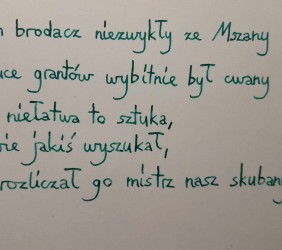 brodacz niezwykły ze Mszany
grantów wybitnie był cwany
niełatwa to sztuka,
jakiś wyszukał,
rozliczał go mistrz nasz skubany